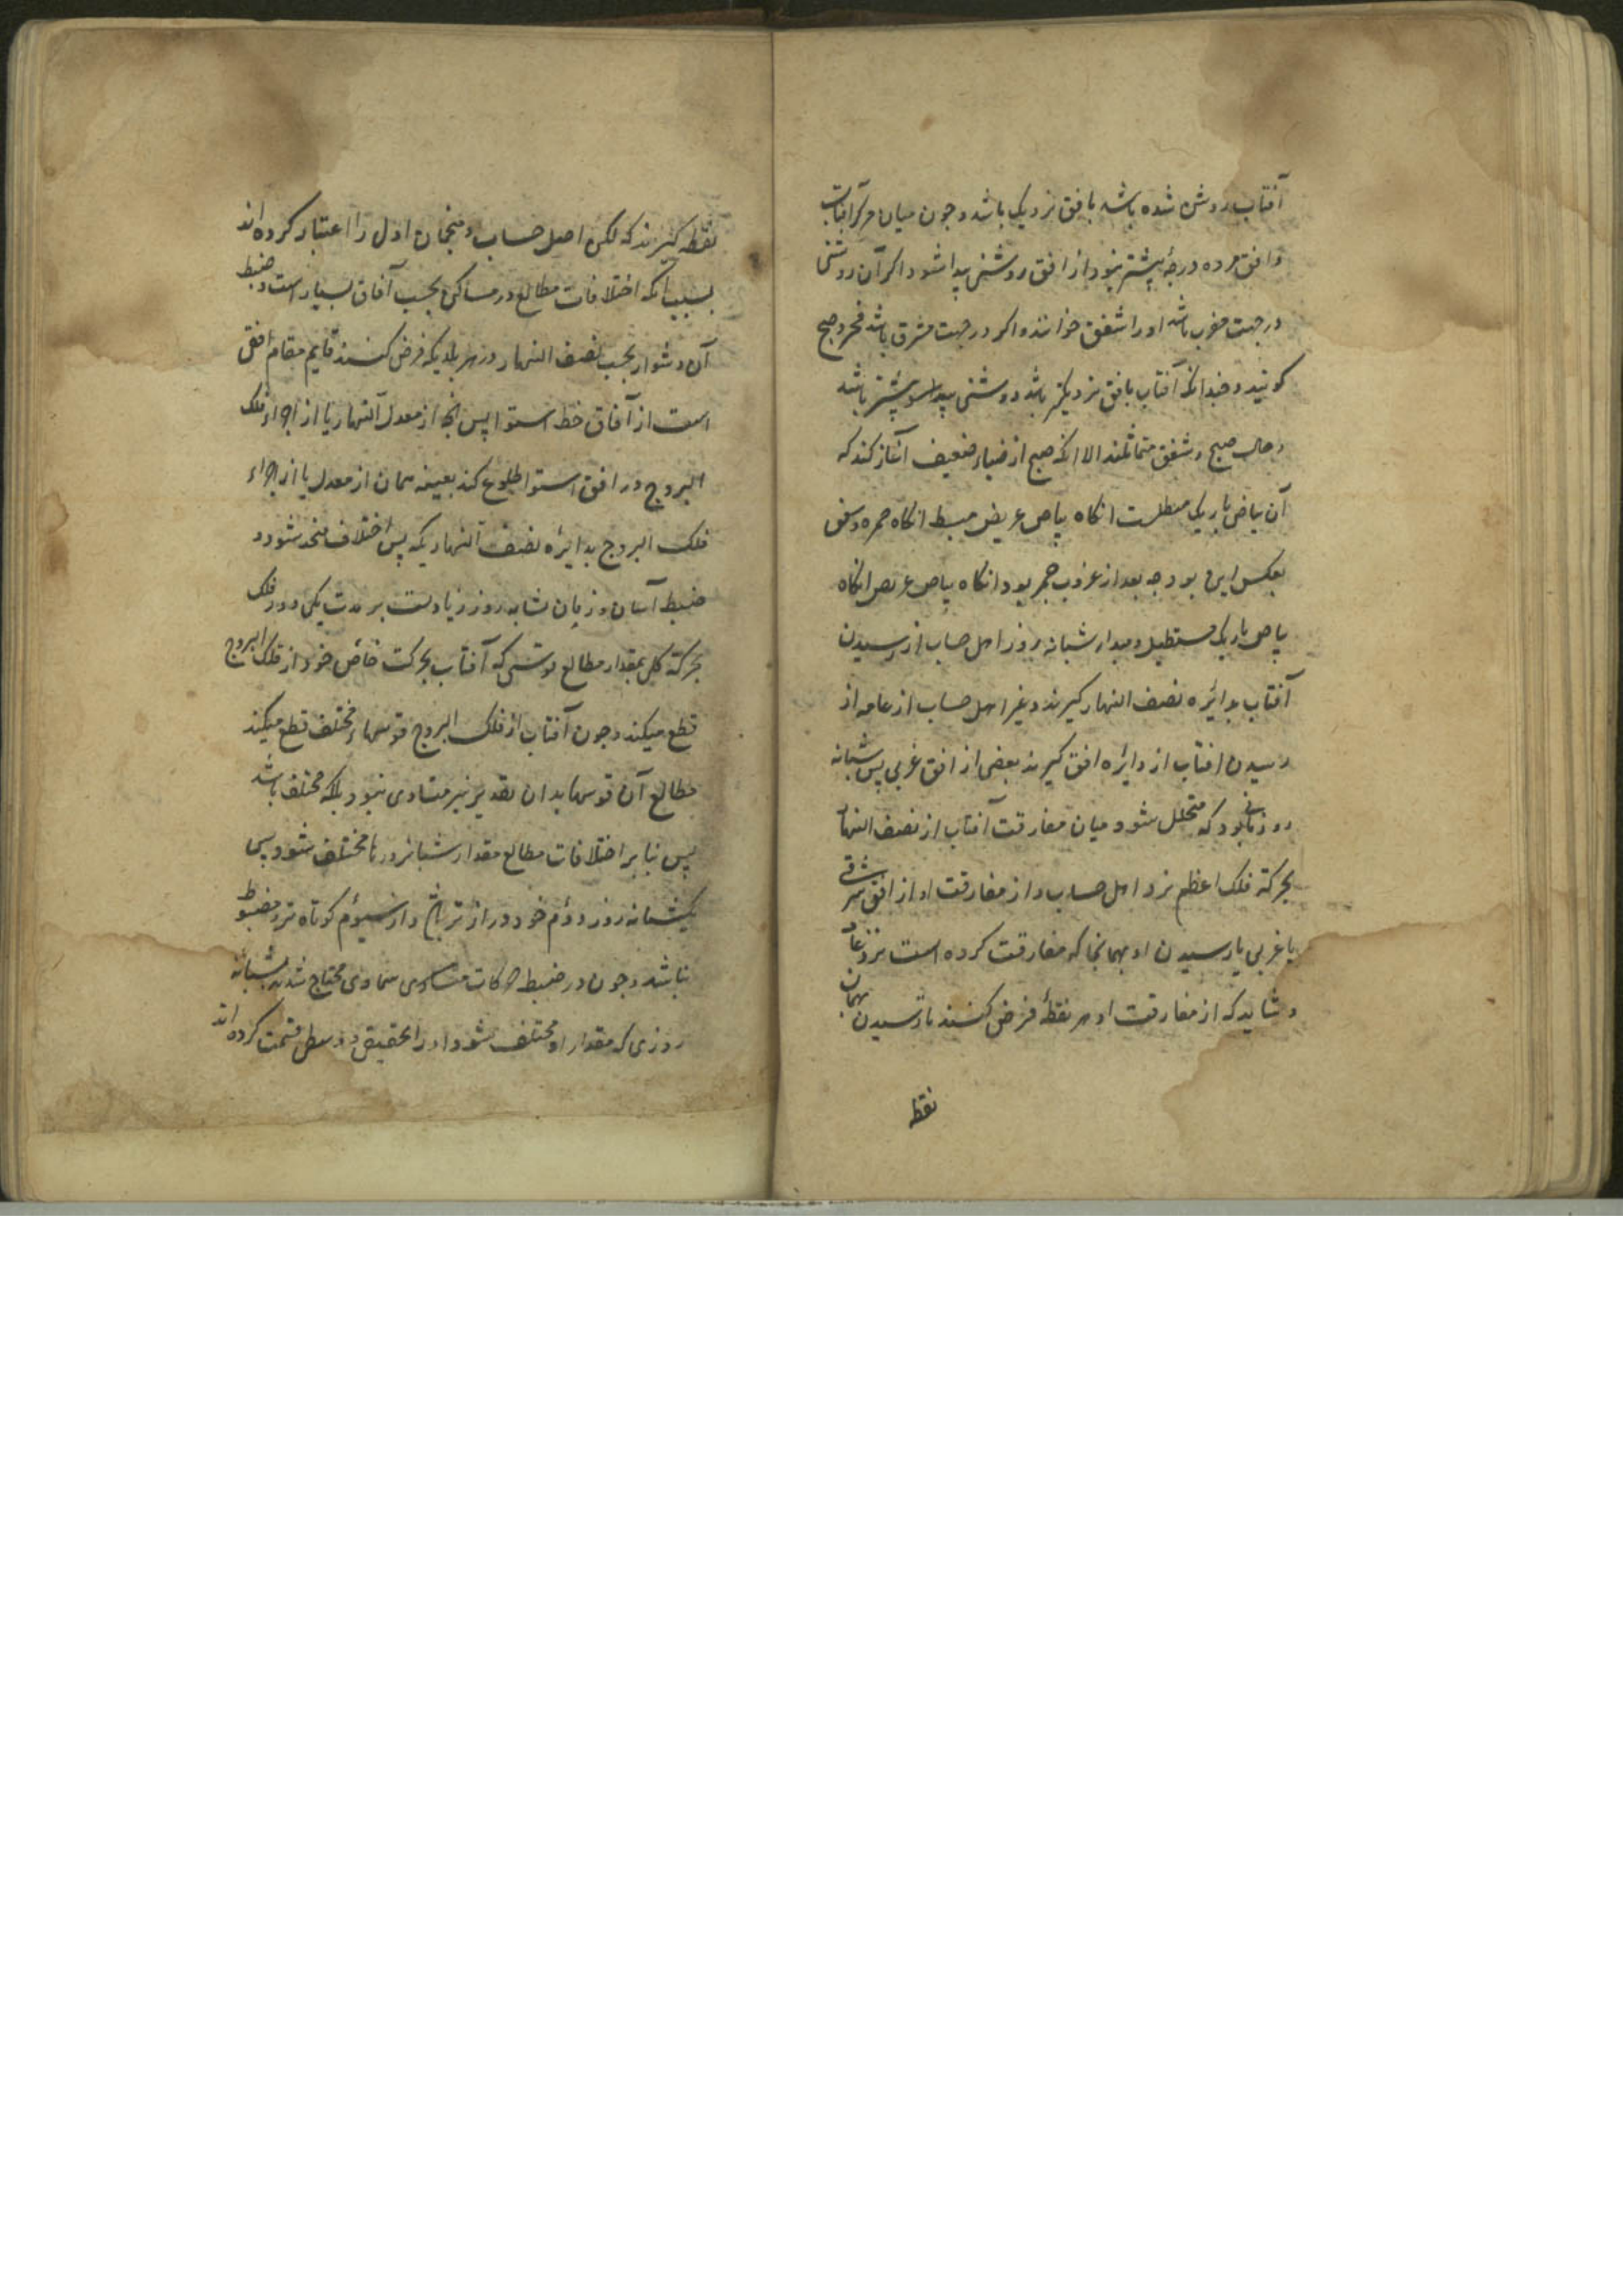 آفتاب روشن شده باشد بافق نزدیک باشد و چون میان مرکز آفتاب
و افق هرده درجه بیشتر نبود از افق روشنی پیدا شود اکر آن روشنی
در جهت مغرب باشد او را شفق خوانند و اکر در جهت مشرق باشد فجر و صبح
کویند و چندانکه آفتاب بافق نزدیکتر باشد روشنی بیشتر باشد
و حال صبح و شفق متماثلند الا انکه صبح از ضیاء ضعیف آغاز کند که
آن بیاض باریک مستطیلست انکاه بیاض عریض منبسط انکاه حمره و شفق
بعکس این بود چه بعد از غروب حمره بود انکاه بیاض عریض انکاه
بیاض باریک مستطیل و مبدا شبانه روز اهل حساب از رسیدن
آفتاب بدائره نصف النهار کیرند و غیر اهل حساب از عامه از
رسیدن افتاب از دایره افق کیرند بعضی از افق غربی پس شبانه
روز زمانی بود که متخلل شود میان مفارقت آفتاب از نصف النهار
بحرکة فلک اعظم نزد اهل حساب و از مفارقت او از افق شرقی
یا غربی یا رسیدن او بهمانجا که مفارقت کرده است نزد عامه
و شاید که از مفارقت او هر نقطهٔ فرض کنند تا رسیدن بهمان
نقطه
نقطه کیرند که لکن اهل حساب و منجمان اول را اعتبار کرده اند
بسبب آنکه اختلافات مطالع در مساکن بحسب آفاق بسیار است و ضبط
آن دشوار بحسب نصف النهار در هر بلدیکه فرض کنند قایم مقام افقی
است از آفاق خط استوا پس آنچه از معدل النهار یا از اجزاء فلک
البروج در افق استوا طلوع کند بعینه همان از معدل یا از اجزاء
فلک البروج بدائره نصف النهار یکه پس اختلاف متحد شود و
ضبط آسان و زمان شبانه روز زیادست بر مدت یکی دور فلک
بحرکة کل بمقدار مطالع قوسی که آفتاب بحرکت خاص خود از فلک البروج
قطع میکند و چون آفتاب از فلک البروج قوسهاء مختلف قطع میکند
مطالع آن قوسها بدان تقدیر نیز متساوی نبود بلکه مختلف باشد
پس بنا بر اختلافات مطالع مقدار شبانروزها مختلف شود پس
یکشبانه روز دوم خود دراز تر باشد و از سیوم کوتاه تر و مضبوط
نباشد و چون در ضبط حرکات متساوی سماوی محتاج شدند بشبانه
روزی که مقدار او مختلف نشود او را بحقیقی و وسطی قسمت کرده اند